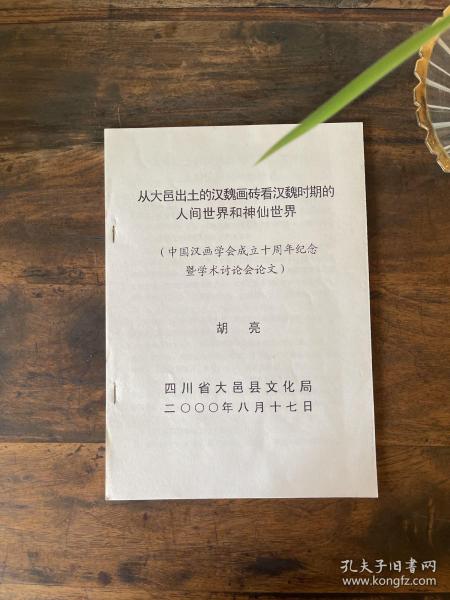 从大邑出土的汉魏画砖看汉魏时期的
人间世界和神仙世界
(中国汉画学会成立十周年纪念
暨学术讨论会论文)
胡 亮
四川省大邑县文化局
二〇〇〇年八月十七日
孔夫子旧书网
www.kongfz.com